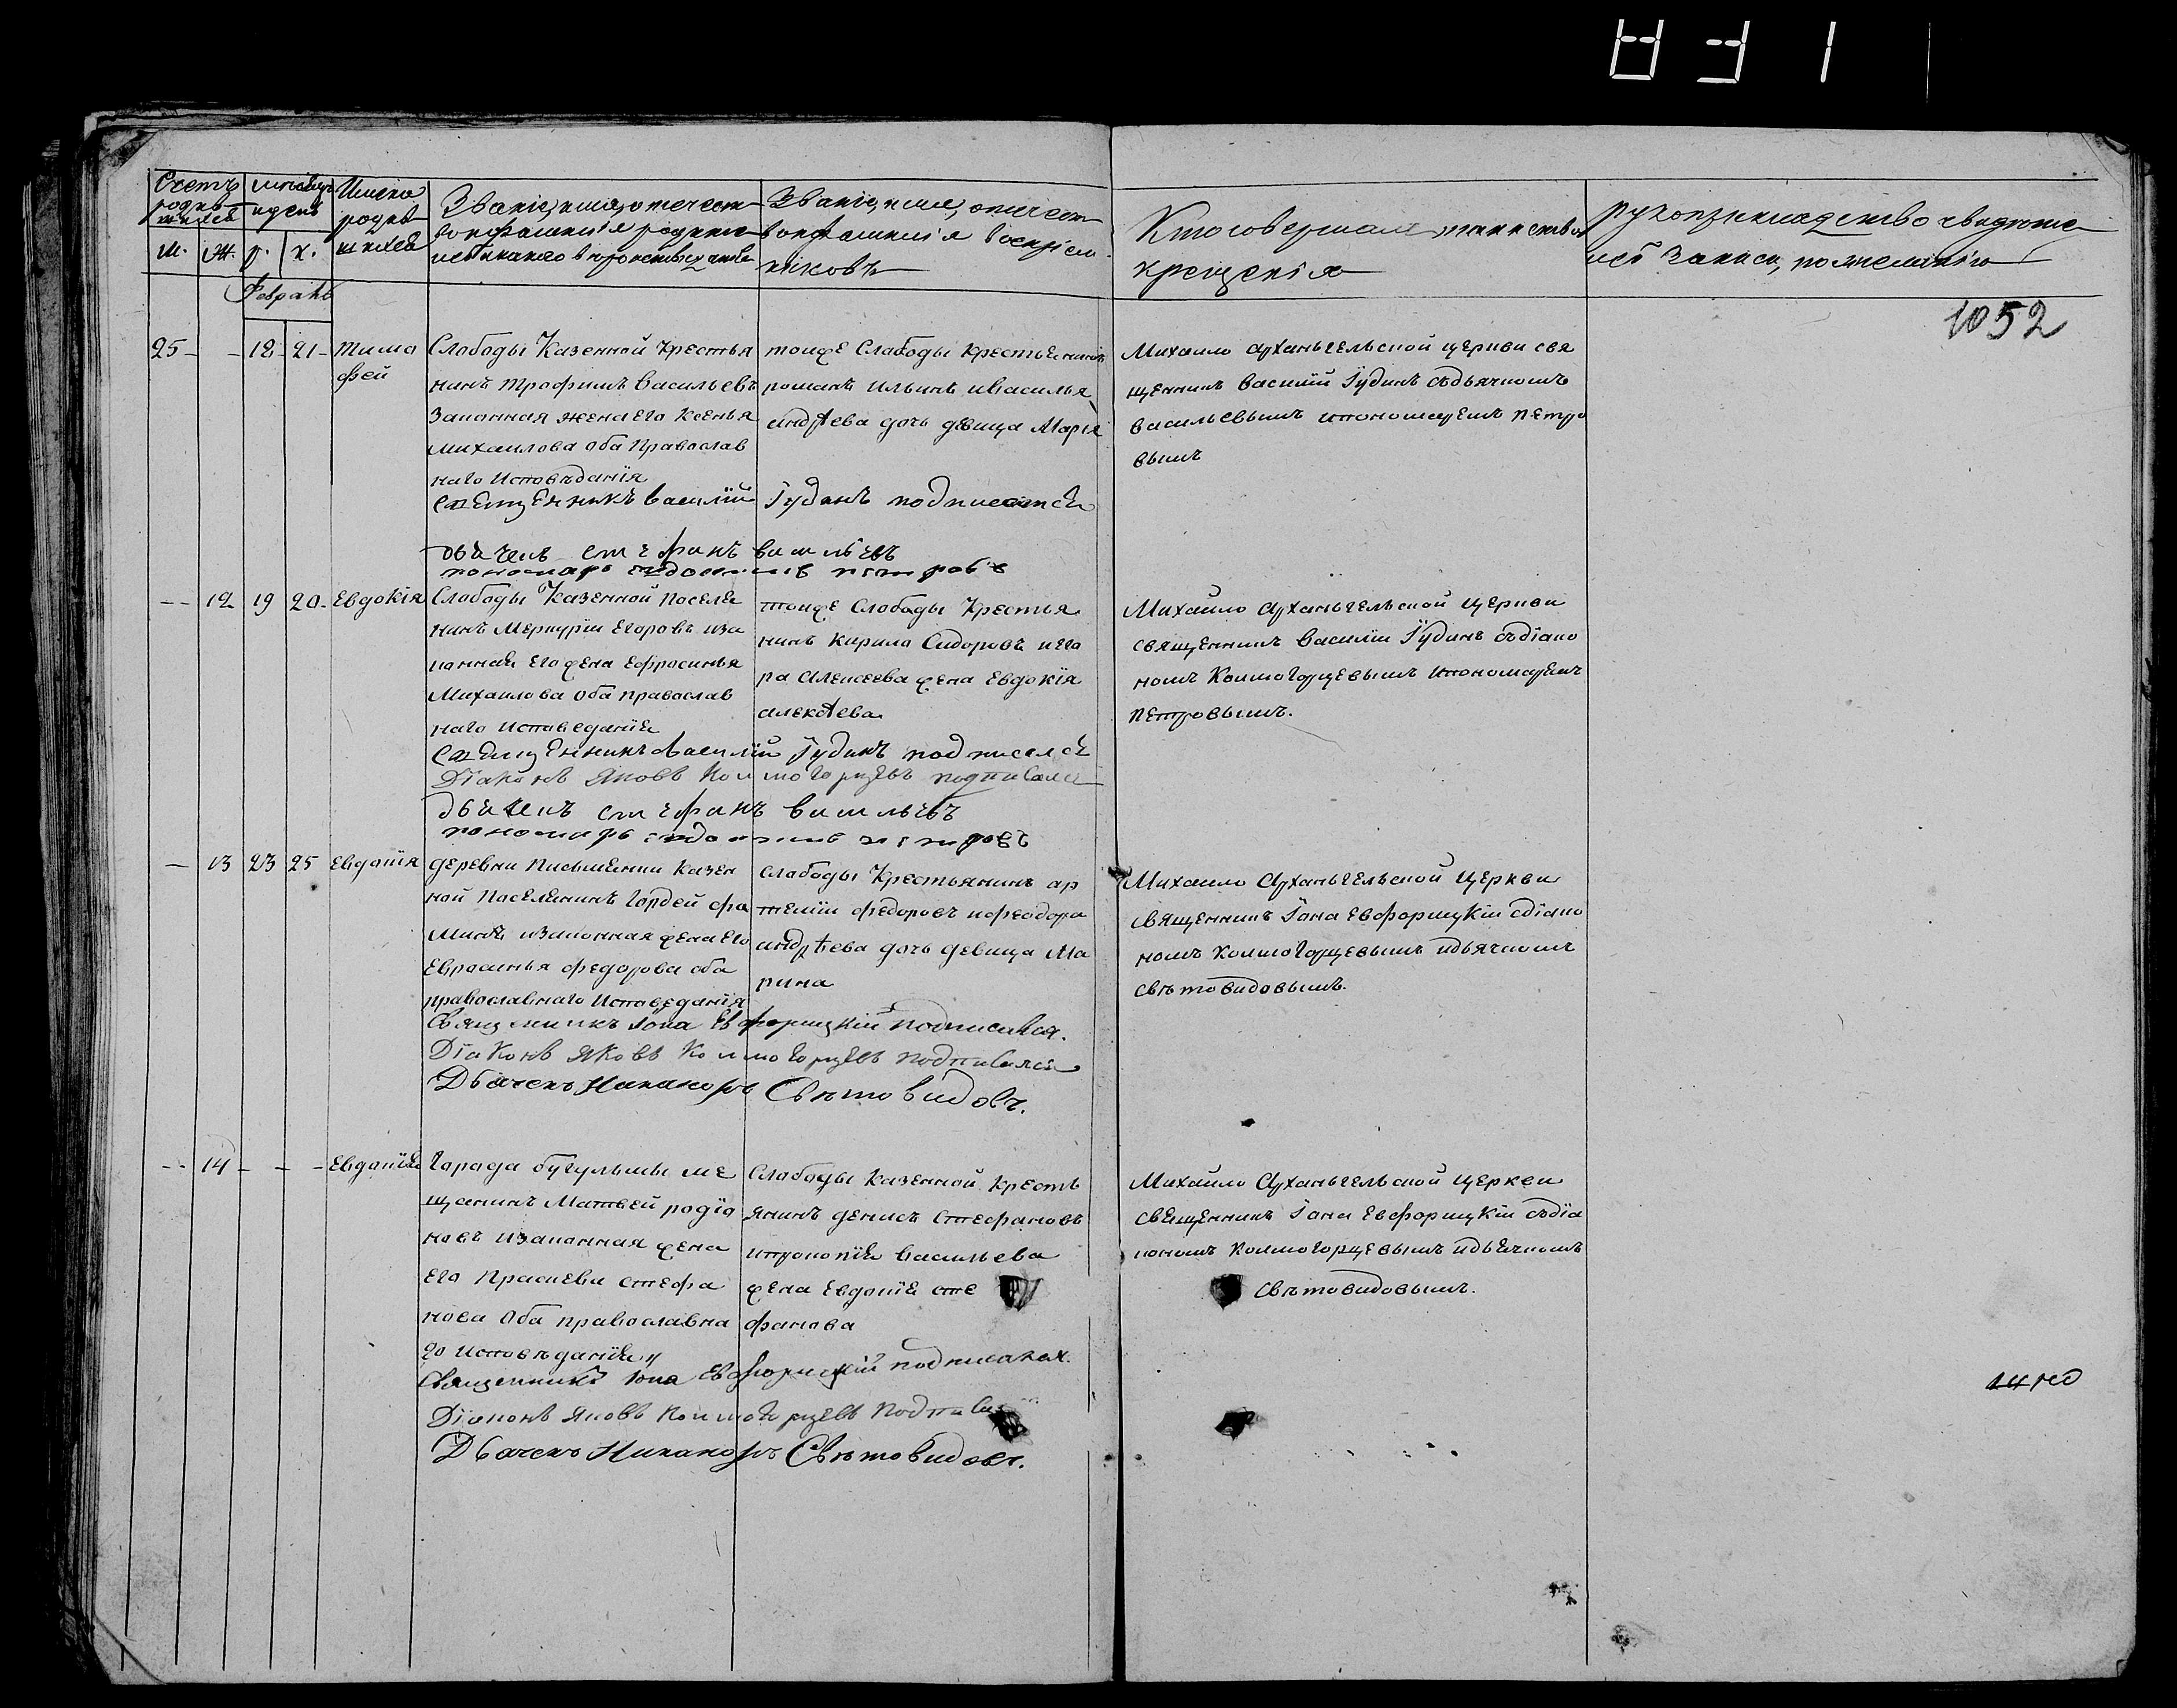 1052
Счетъ родившихся
мѣсяцъ и день
Имена родившихся
Званіе, имя, отчество и фамилія родителей и какого вѣроисповеданія
Званіе, имя, отчество и фамилія воспріемниковъ
Кто совершалъ таинство крещенія
рукоприкладство свидѣтелей записи, по желанію
м. ж. р. к.
Февраль
25 - - 18 - 21 - Тимо
фей
Слободы Казенной Крестья
нинъ Трофимъ Васильевъ
Законная жена Его Ксенья
Михаилова оба Православ
наго Исповѣданія
тойже Слободы Крестьянинъ
романъ Ильинъ и Василья
андрѣева дочь дѣвица Марія
Михаило Архангельской церкви свя
щенникъ Василій Гудинъ съ дьячкомъ
васильевымъ и пономаремъ Петро
вымъ
Священникъ Василій Гудинъ подписался
дьячекъ стефанъ васильевъ
пономарь петровъ
- - 12 19 20 - Евдокія
Слободы Казенной Поселя
нинъ Меркурій Егоровъ и за
конная Его жена Ефросинья
Михаилова Оба православ
наго Исповеданія
тойже Слободы Крестья
нинъ Кирило Сидоровъ и его
ра Алексеева жена Евдокія
алексѣева
Михайло Архангельской церкви
священникъ Василій Гудинъ съ діако
номъ Колмогорцевымъ и пономаремъ
Петровымъ.
Священникъ Василій Гудинъ подписался
Діаконъ Яковъ Колмогорцевъ подписался
дьячекъ стефанъ васильевъ
пономарь петровъ
- 13 23 25 Евдокія
деревни Письмянки Казен
ной Поселянинъ Гордей фо
минъ и Законная жена Его
Евросинья федорова оба
православнаго Исповеданія
слободы Крестьянинъ ар
темій федоровъ и феодора
андрѣева дочь девица Ма
рина
Михаило Архангельской Церкви
священникъ Іона Евфорицкій с діако
номъ Колмогорцевымъ и дьячкомъ
Свѣтовидовымъ.
Священникъ Іона Евфорицкій подписался.
Діаконъ Яковъ Колмогорцевъ подписался
Дьячекъ Никаноръ Свѣтовидовъ.
- - 14 - - - Евдокія
города бугульмы ме
щанинъ Матвей родіо
новъ и законная жена
Его Прасковья стефа
нова Оба православна
го Исповѣданія
Слободы Казенной Кресть
янинъ денисъ Стефановъ
и прокопія Васильева
жена Евдокія сте
фанова
Михайло Архангельской церкви
священникъ Іона Евфорицкій съ діа
кономъ Колмогорцевымъ и дьячкомъ
Свѣтовидовымъ.
Священникъ Іона Евфорицкій подписался.
Діаконъ Яковъ Колмогорцевъ подписал
Дьячекъ Никаноръ Свѣтовидовъ.